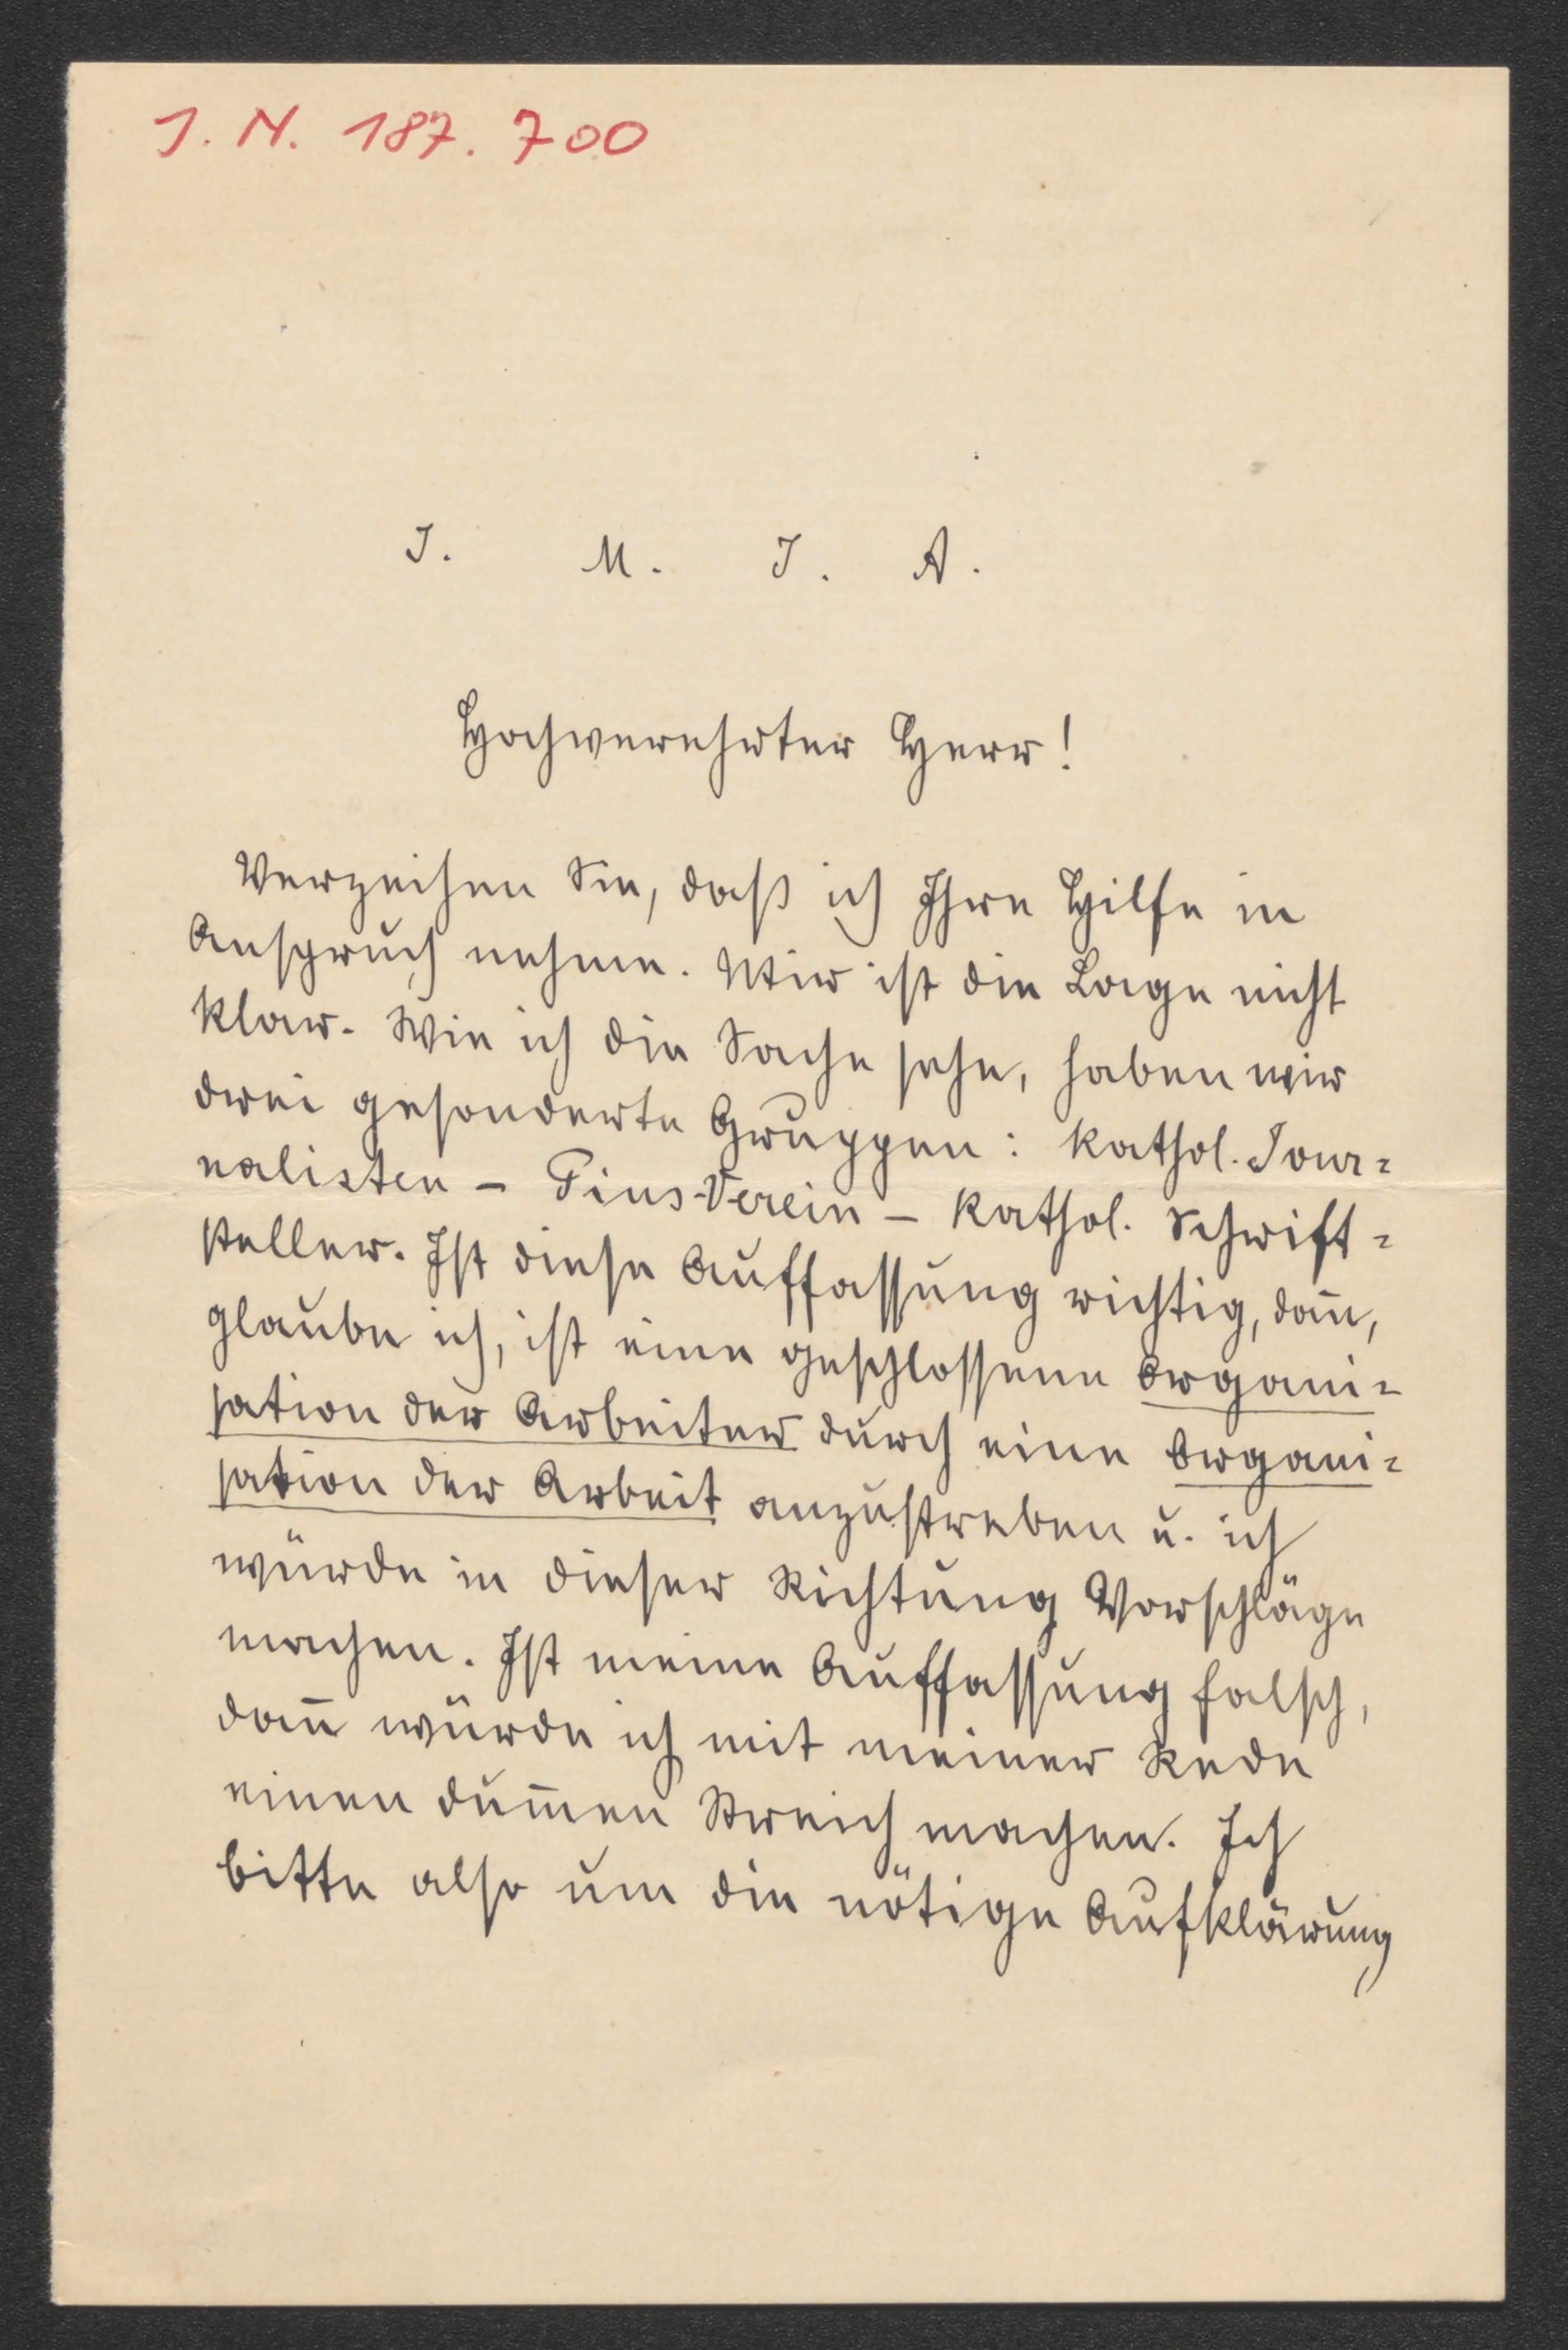 J. N. 187.700
J. M. J. A.
Hochverehrter Herr!
Verzeihen Sie, daß ich Ihre Hilfe in
Anspruch nehme. Mir ist die Lage nicht
klar. Wie ich die Sache sehe, haben wir
drei gesonderte Gruppen: kathol. Jour=
nalisten – Pius-Verein – kathol. Schrift=
steller. Ist diese Auffassung richtig, dañ,
glaube ich, ist eine geschlossene Organi=
sation der Arbeiter durch eine Organi=
sation der Arbeit anzustreben u. ich
würde in dieser Richtung Vorschläge
machen. Ist meine Auffassung falsch,
dañ würde ich mit meiner Rede
einen dum̄en Streich machen. Ich
bitte also um die nötige Aufklärung